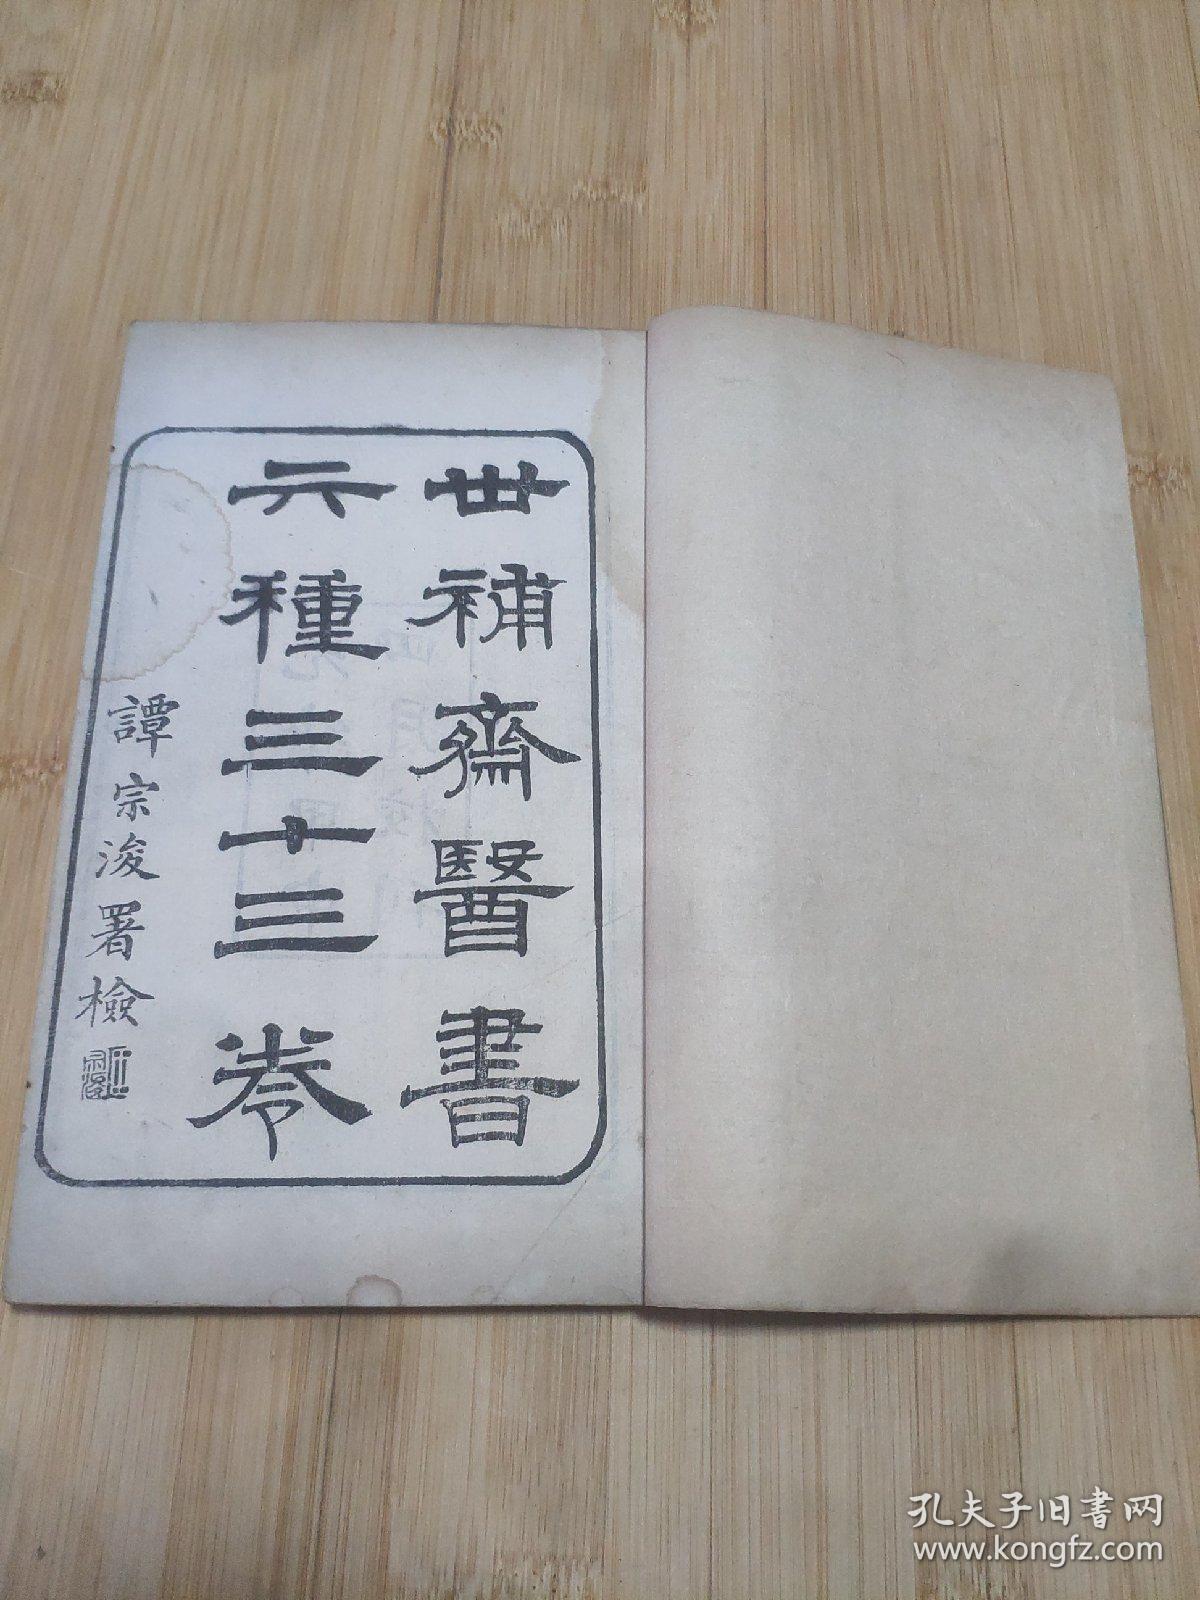 世補齋醫書
六種三十三卷
譚宗浚署檢
孔夫子旧书网
www.kongfz.com